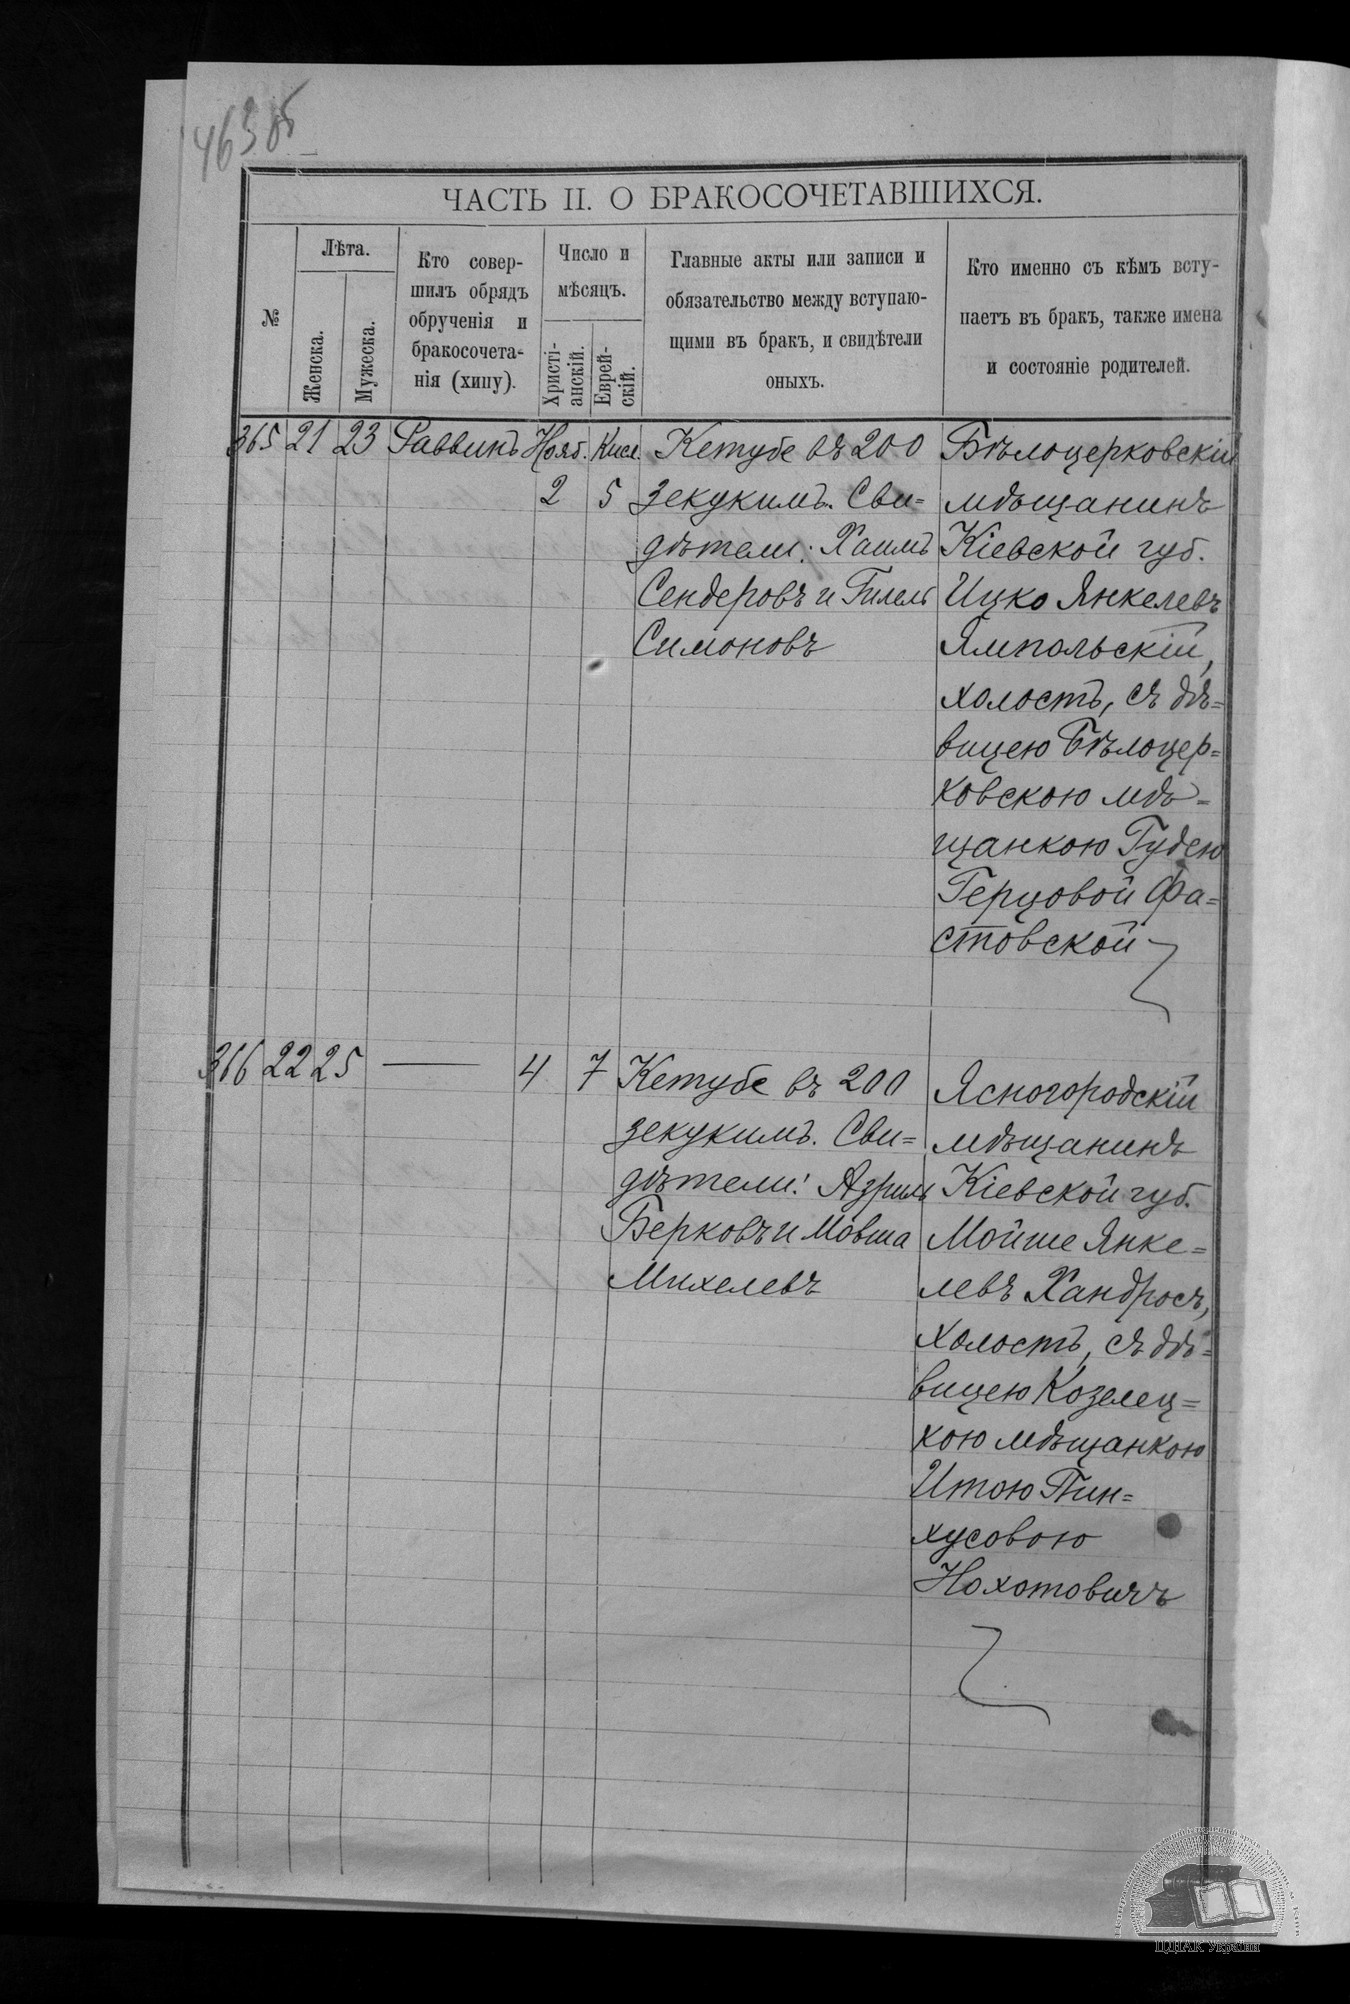 463об
ЧАСТЬ II. О БРАКОСОЧЕТАВШИХСЯ.
№
Лѣта.
Женска.
Мужеска.
Кто совер-
шилъ обрядъ
обрученія и
бракосочета-
нія (хипу).
Число и
мѣсяцъ.
Христі-
анскій.
Еврей-
скій.
Главные акты или записи и
обязательство между вступаю-
щими въ бракъ, и свидѣтели
оныхъ.
Кто именно съ кѣмъ всту-
паетъ въ бракъ, также имена
и состояніе родителей.
365 21 23 Раввинъ Нояб. Кисл.
2 5
Кетубе въ 200
зекукимъ. Сви=
дѣтели: Хаимъ
Сендеровъ и Гилель
Симоновъ
Бѣлоцерковскій
мѣщанинъ
Кіевской губ.
Ицко Янкелевъ
Ямпольскій,
холостъ, съ дѣ=
вицею Бѣлоцер=
ковскою мѣ=
щанкою Гудею
Герцовой Фа=
стовской
366 22 25 — 4 7
Кетубе въ 200
зекукимъ. Сви=
дѣтели: Азриль
Берковъ и Мовша
Михелевъ
Ясногородскій
мѣщанинъ
Кіевской губ.
Мойше Янке=
левъ Хандросъ,
холостъ, съ дѣ=
вицею Козелец=
кою мѣщанкою
Итою Пин=
хусовою
Нохотовичъ
ЦДІАК України